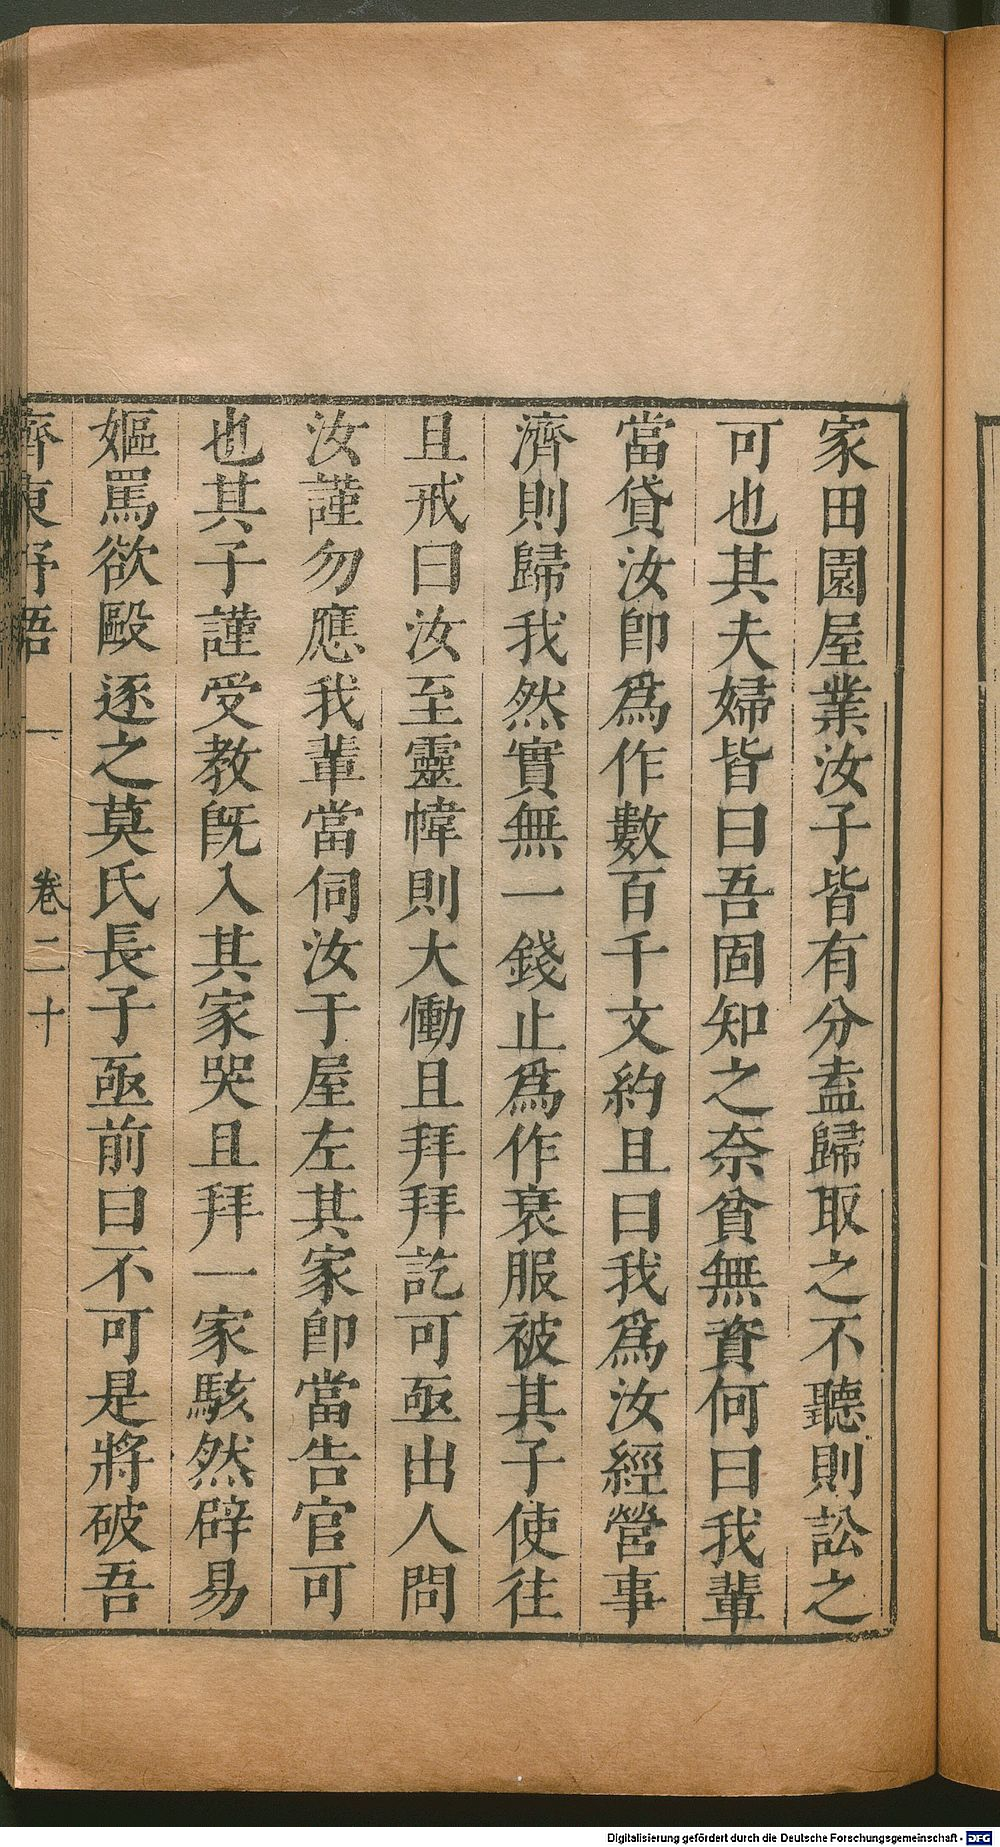 家田園屋業汝子皆有分盍歸取之不聽則訟之
可也其夫婦皆曰吾固知之奈貧無資何曰我輩
當貸汝卽爲作數百千文約且曰我爲汝經營事
濟則歸我然實無一錢止爲作衰服被其子使往
且戒曰汝至靈幃則大慟且拜拜訖可亟出人問
汝謹勿應我輩當伺汝于屋左其家卽當告官可
也其子謹受教旣入其家哭且拜一家駭然辟易
嫗罵欲毆逐之莫氏長子亟前曰不可是將破吾
齊東野語 卷二十
Digitalisierung gefördert durch die Deutsche Forschungsgemeinschaft - DFG